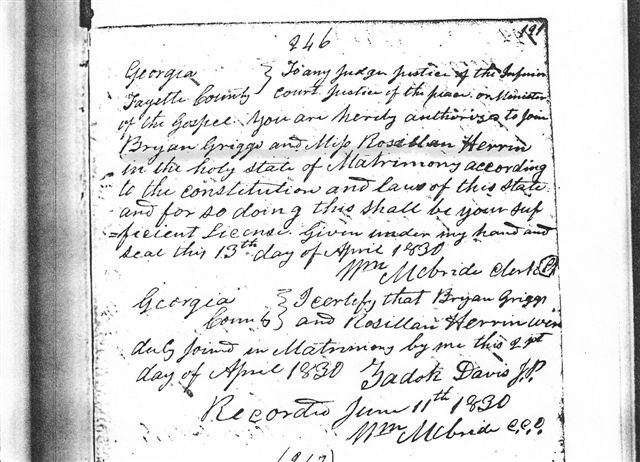 191
246
Georgia } To any Judge Justice of the Inferior
Fayette County } court Justice of the peace or Minister
of the Gospel You are hereby authorized to Join
Bryan Griggs and Miss Rosillan Herrin
in the holy state of Matrimony according
to the constitution and laws of this state
and for so doing this shall be your suf
=ficient License. Given under my hand and
seal this 13th day of April 1830
Wm McBride Clerk
Georgia } I certify that Bryan Griggs
County } and Rosillan Herrin were
duly joined in Matrimony by me this
day of April 1830 Zadok Davis J.P.
Recorded June 11th 1830
Wm McBride C.C.O.
(247)